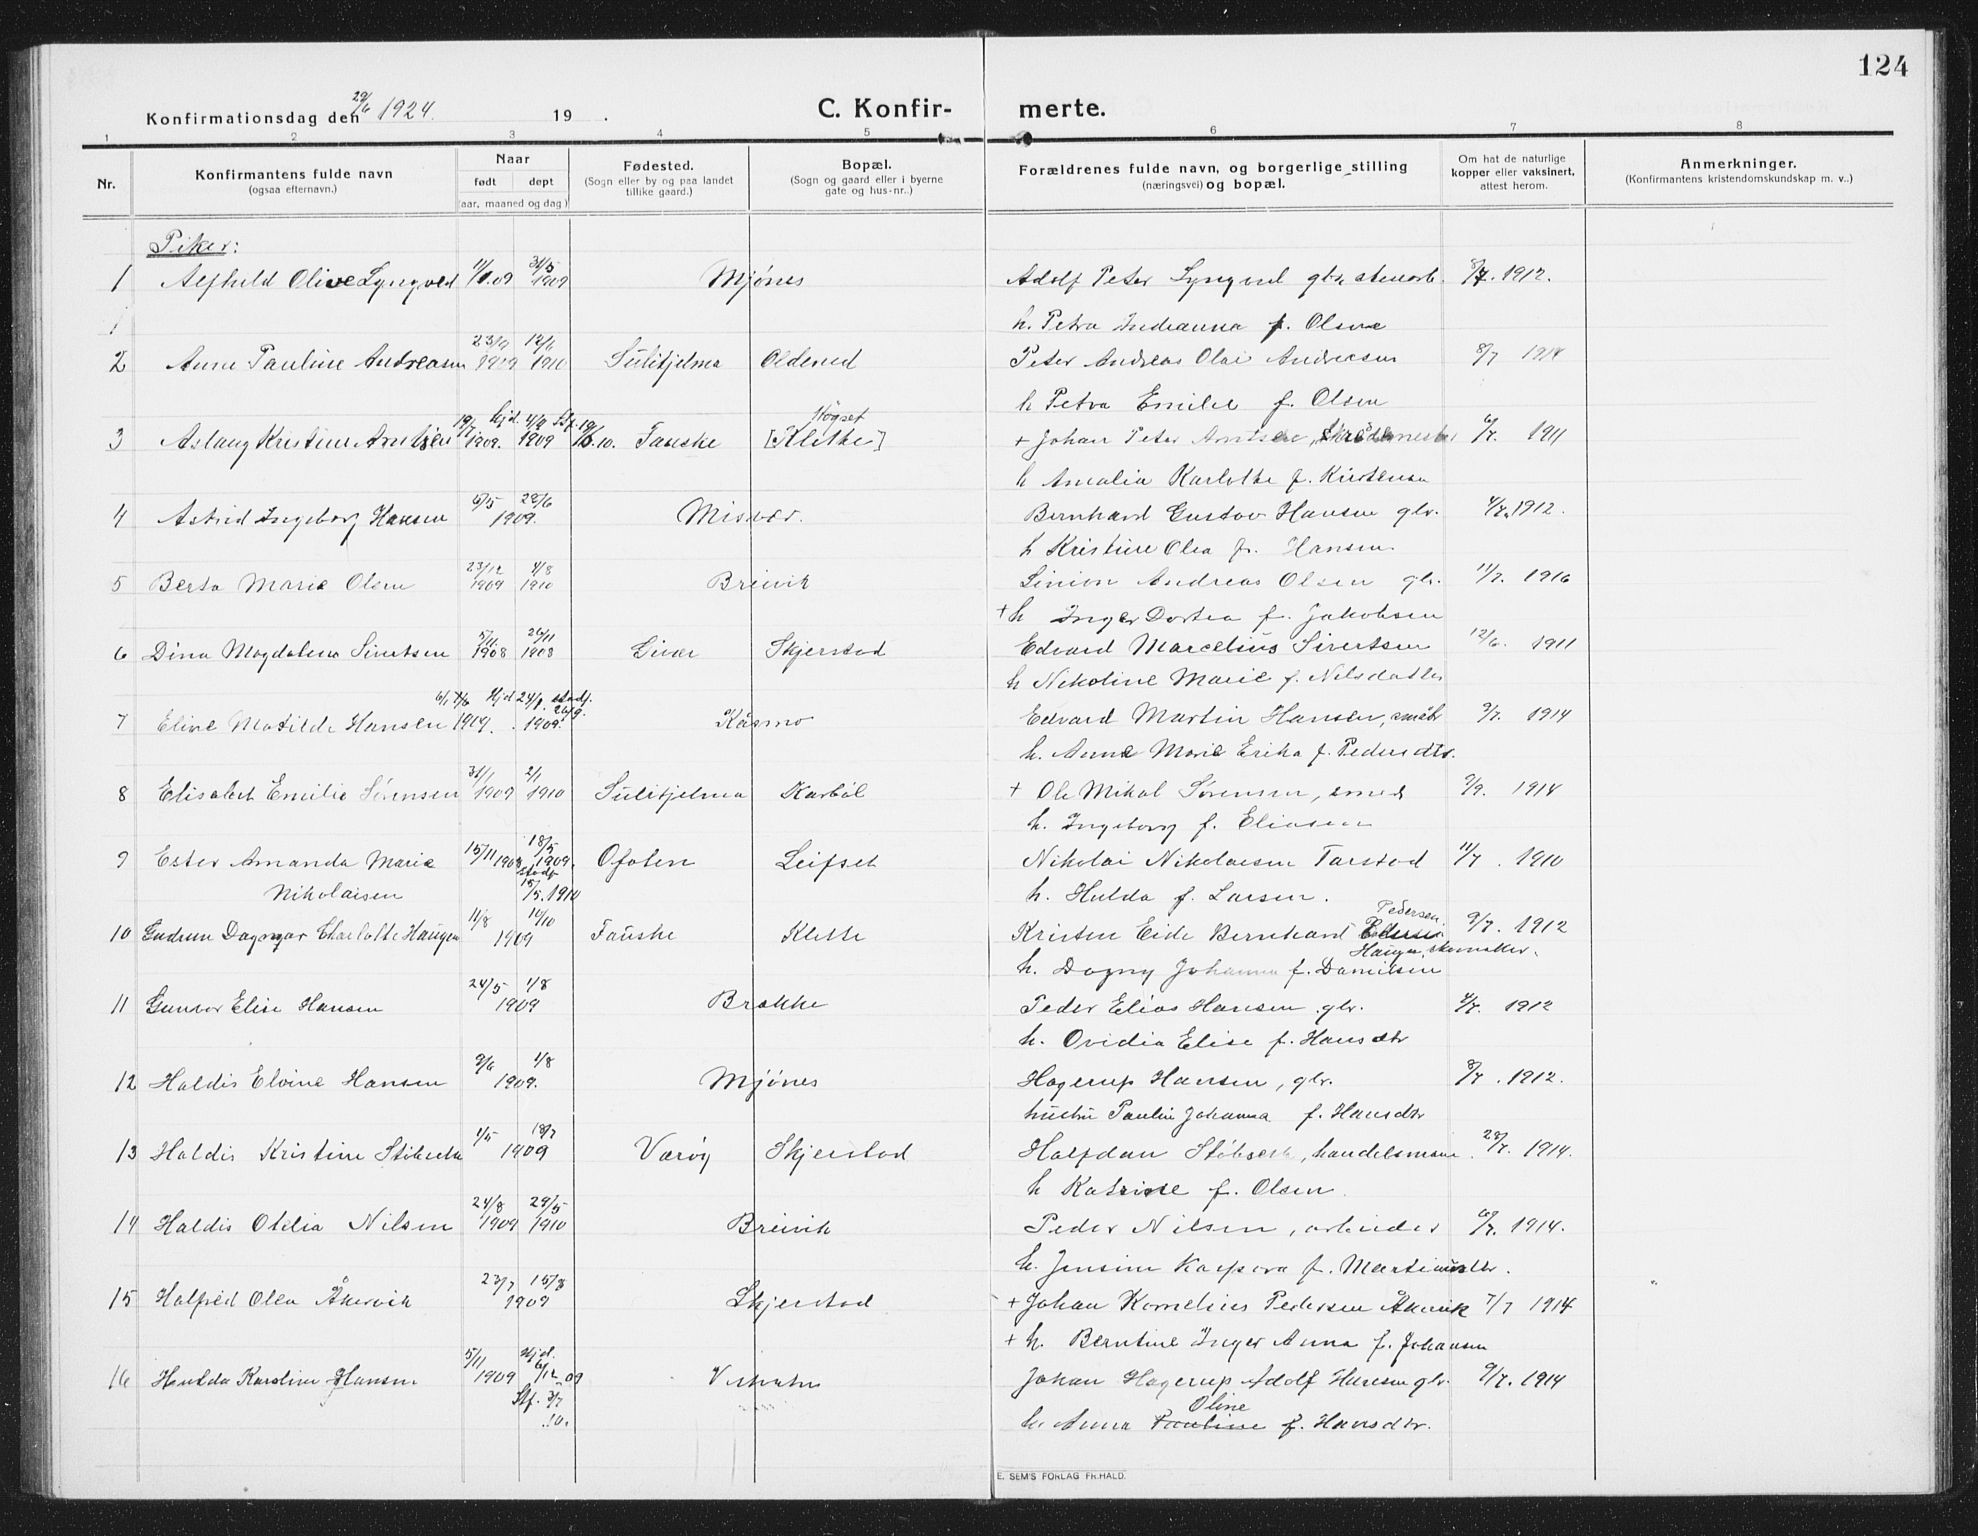 124
Konfirmationsdag den 29/6 1924. 19 .
C. Konfir- merte.
1 2 3 4 5 6 7 8
Nr. Konfirmantens fulde navn (ogsaa efternavn.) Naar født døpt (aar, maaned og dag) Fødested. (Sogn eller by og paa landet tillike gaard.) Bopæl. (Sogn og gaard eller i byerne gate og hus-nr..) Forældrenes fulde navn, og borgerlige stilling (næringsvei) og bopæl. Om hat de naturlige kopper eller vaksinert, attest herom. Anmerkninger. (Konfirmantens kristendomskundskap m. v..)
Piker:
1 Alfhild Olive Lyngved 31/5 1909 Mjønes Adolf Peter Lyngved gbr. stenarb. 8/7. 1912.
h. Petra Indianna f. Olsen
2 Anne Pauline Andreasen 23/9 1909 12/6 1910 Sulitjelma Oldereid Peter Andreas Olai Andreasen 8/7 1914
h Petra Emilie f. Olsen
3 Aslaug Kristine Arntsen 19/7 1909. Hjd. 4/9 1909 Stf. 19/6.10. Fauske Høgset [Klette] + Johan Peter Arntsen, skreddermester 6/7. 1911
h Amalia Karlotte f. Kristensen
4 Astrid Ingeborg Hansen 6/5 22/6 1909. Misvær. Bernhard Gustav Hansen gbr. 4/7. 1912.
h Kristine Olea f. Hansen
5 Berta Marie Olsen 23/12 1909 7/8 1910 Breivik Simon Andreas Olsen gbr. 11/7. 1916
+ h Inger Dortea f. Jakobsen
6 Dina Magdalena Sivertsen 5/11 1908 26/11 1908 Givær Skjerstad Edvard Marcelius Sivertsen 12/6. 1911
h Nikoline Marie f. Nilsdatter
7 Eline Matilde Hansen 1909. Hjd 24/9. 1909. stadf. 26/9. Kåsmo Edvard Martin Hansen, småbr. 9/7. 1914
h. Anne Marie Erika f. Pedersdtr.
8 Elisabet Emilie Sørensen 31/1 1909 2/1 1910 Sulitjelma Karbøl + Ole Mikal Sørensen, smed 9/9. 1914
h. Ingeborg f. Eliasen
9 Ester Amanda Marie 15/11 1908 18/5 1909. Ofoten Leifset Nikolai Nikolaisen Tarstad 11/7. 1910
Nikolaisen stadf 15/5. 1910 h. Hulda f. Larsen.
10 Gudrun Dagmar Charlotte Haugen 11/8 10/10 1909 Fauske Klette Kristen Eide Bernhard Pedersen Pedersen. Haugen, skomaker. 9/7. 1912
h. Dagny Johanna f. Danielsen
11 Gunvor Elise Hansen 24/5 1/8 1909 Brekke Peder Elias Hansen, gbr. 4/7. 1912
h. Ovidia Elise f. Hansdtr
12 Haldis Elvine Hansen 9/6 1/8 1909. Mjønes Hagerup Hansen, gbr. 8/7. 1912.
hustru Pauline Johanna f. Hansdtr
13 Haldis Kristine Støbseth 1/5 18/7 1909 Værøy Skjerstad Halfdan Støbseth, handelsmann. 28/7. 1914.
h Katrine f. Olsen.
14 Haldis Otelia Nilsen 24/8 1909 29/5 1910 Breivik Peder Nilsen, arbeider 6/7. 1914.
h. Jensine Kaspara f. Martinusdtr.
15 Halfrid Olea Åkervik 23/7 15/8 1909 Skjerstad + Johan Kornelius Pedersen Åkervik 7/7 1914
+ h. Berntine Inger Anna f. Johansen
16 Hulda Karoline Hansen 5/11 1909 Hjd. 6/12 09 Johan Hagerup Adolf Hansen gbr. 9/7. 1914
Stf. 3/7 .10. h. Anna Pauline Oline f. Hansdtr.
E. SEM'S FORLAG FR.HALD.